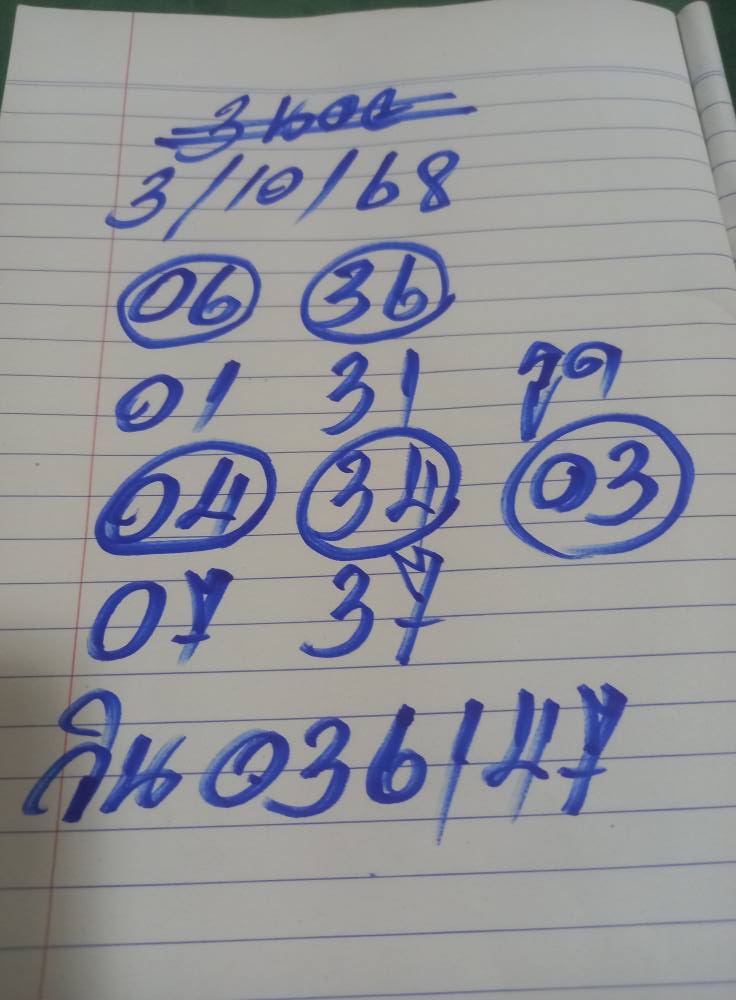 3/10/68
06 36
01 31 รูด
04 34 03
07 37
วิน 036147